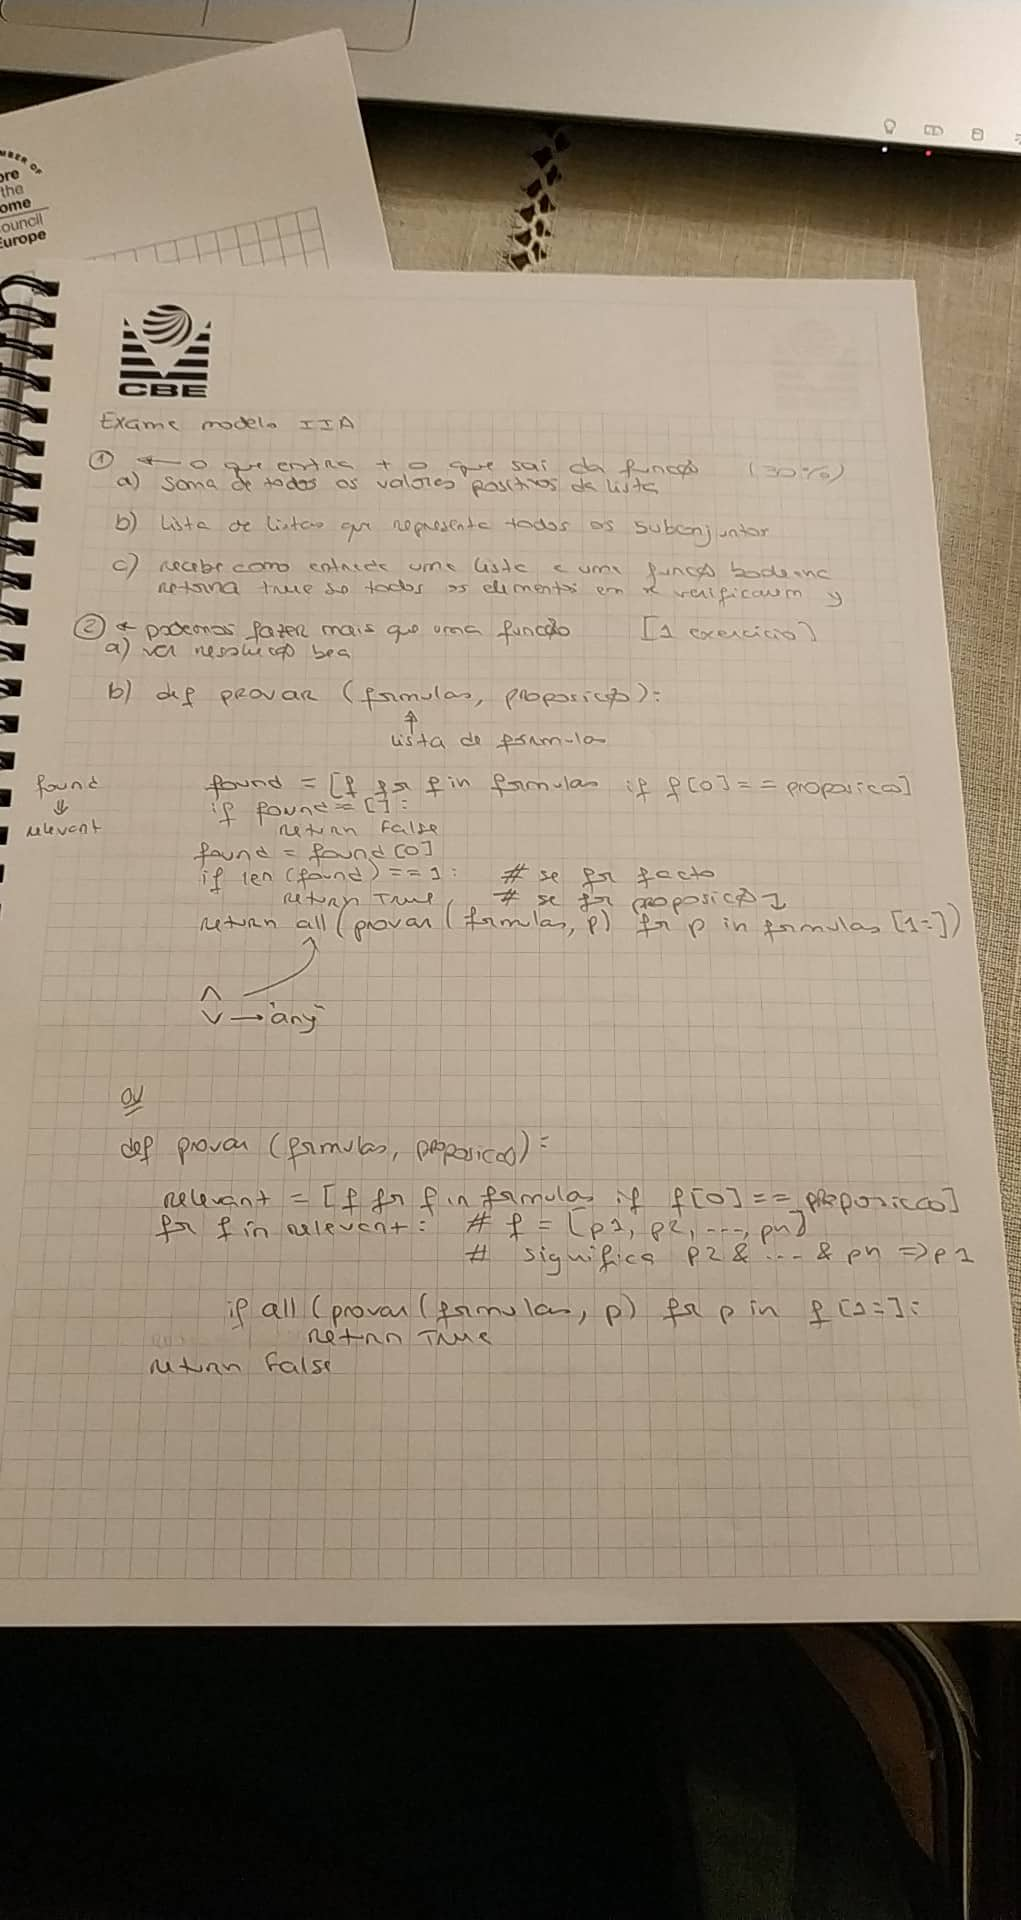 MBER OF
ore
the
ome
ouncil
Europe
CBE
Exame modelo IIA
① ← o que entra + o que sai da função (30%)
a) soma de todos os valores positivos da lista
b) lista de listas que representa todos os subconjuntos
c) recebe como entrada uma lista e uma função booleana
retorna true se todos os elementos em x verificarem y
② * podemos fazer mais que uma função [1 exercício]
a) ver resolução bea
b) def provar (formulas, proposição):
↑
lista de formula
found = [f for f in formulas if f[0] == proposicao]
found
⇓
relevant
if found == []:
return False
found = found[0]
if len (found) == 1: # se for facto
return True # se for proposição 1
return all (provar (formulas, p) for p in formulas [1:])
∧
∨ → "any"
ou
def provar (formulas, proposicao):
relevant = [f for f in formulas if f[0] == proposicao]
for f in relevant: # f = [p1, p2, ..., pn]
# significa p2 & ... & pn => p1
if all (provar (formulas, p) for p in f [1:]:
return True
return False